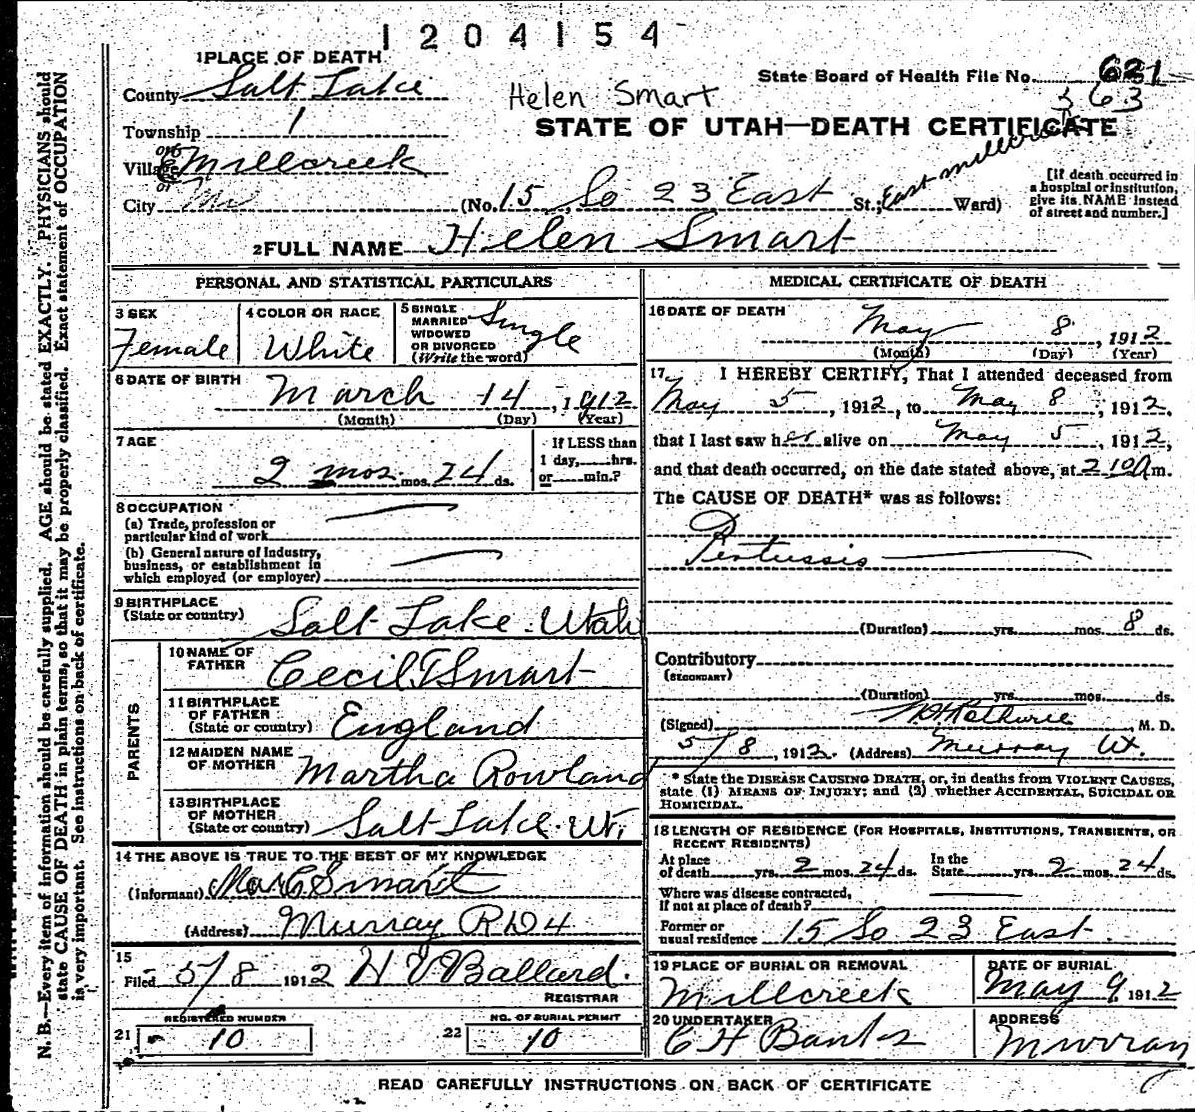 1204154
1 PLACE OF DEATH
County Salt Lake
State Board of Health File No. 621
363
Helen Smart
Township 1
STATE OF UTAH—DEATH CERTIFICATE
Village Millcreek
or
City
(No. 15 So 23 East St.; East Millcreek Ward)
[If death occurred in a hospital or institution, give its NAME instead of street and number.]
2 FULL NAME Helen Smart
PERSONAL AND STATISTICAL PARTICULARS
3 SEX
Female
4 COLOR OR RACE
White
5 SINGLE
MARRIED
WIDOWED
OR DIVORCED
(Write the word)
Single
6 DATE OF BIRTH
March 14, 1912
(Month) (Day) (Year)
7 AGE
2 mos. mos. 24 ds.
If LESS than
1 day,......hrs.
or......min.?
8 OCCUPATION
(a) Trade, profession or
particular kind of work
(b) General nature of Industry,
business, or establishment in
which employed (or employer)
9 BIRTHPLACE
(State or country)
Salt Lake. Utah
PARENTS
10 NAME OF
FATHER
Cecil T Smart
11 BIRTHPLACE
OF FATHER
(State or country)
England
12 MAIDEN NAME
OF MOTHER
Martha Rowland
13 BIRTHPLACE
OF MOTHER
(State or country)
Salt Lake. Ut,
14 THE ABOVE IS TRUE TO THE BEST OF MY KNOWLEDGE
(Informant) C Smart
(Address) Murray RD4
15
Filed 5/8 1912 H V Ballard.
REGISTRAR
REGISTERED NUMBER
21 10
NO. OF BURIAL PERMIT
22 10
MEDICAL CERTIFICATE OF DEATH
16 DATE OF DEATH
May 8, 1912
(Month) (Day) (Year)
17 I HEREBY CERTIFY, That I attended deceased from
May 5, 1912, to May 8, 1912,
that I last saw her alive on May 5, 1912,
and that death occurred, on the date stated above, at 2 10 Am.
The CAUSE OF DEATH* was as follows:
Pertussis
(Duration) yrs. mos. 8 ds.
Contributory
(SECONDARY)
(Duration) yrs. mos. ds.
(Signed) M. D.
5/8, 1912. (Address) Murray Ut.
* State the DISEASE CAUSING DEATH, or, in deaths from VIOLENT CAUSES,
state (1) MEANS OF INJURY; and (2) whether ACCIDENTAL, SUICIDAL OR
HOMICIDAL.
18 LENGTH OF RESIDENCE (FOR HOSPITALS, INSTITUTIONS, TRANSIENTS, OR
RECENT RESIDENTS)
At place
of death yrs. 2 mos. 24 ds.
In the
State yrs. 2 mos. 24 ds.
Where was disease contracted,
If not at place of death?
Former or
usual residence 15 So 23 East
19 PLACE OF BURIAL OR REMOVAL
Millcreek
DATE OF BURIAL
May 9, 1912
20 UNDERTAKER
C H Banks
ADDRESS
Murray
READ CAREFULLY INSTRUCTIONS ON BACK OF CERTIFICATE
N. B.—Every item of information should be carefully supplied. AGE should be stated EXACTLY. PHYSICIANS should
state CAUSE OF DEATH in plain terms, so that it may be properly classified. Exact statement of OCCUPATION
is very important. See instructions on back of certificate.